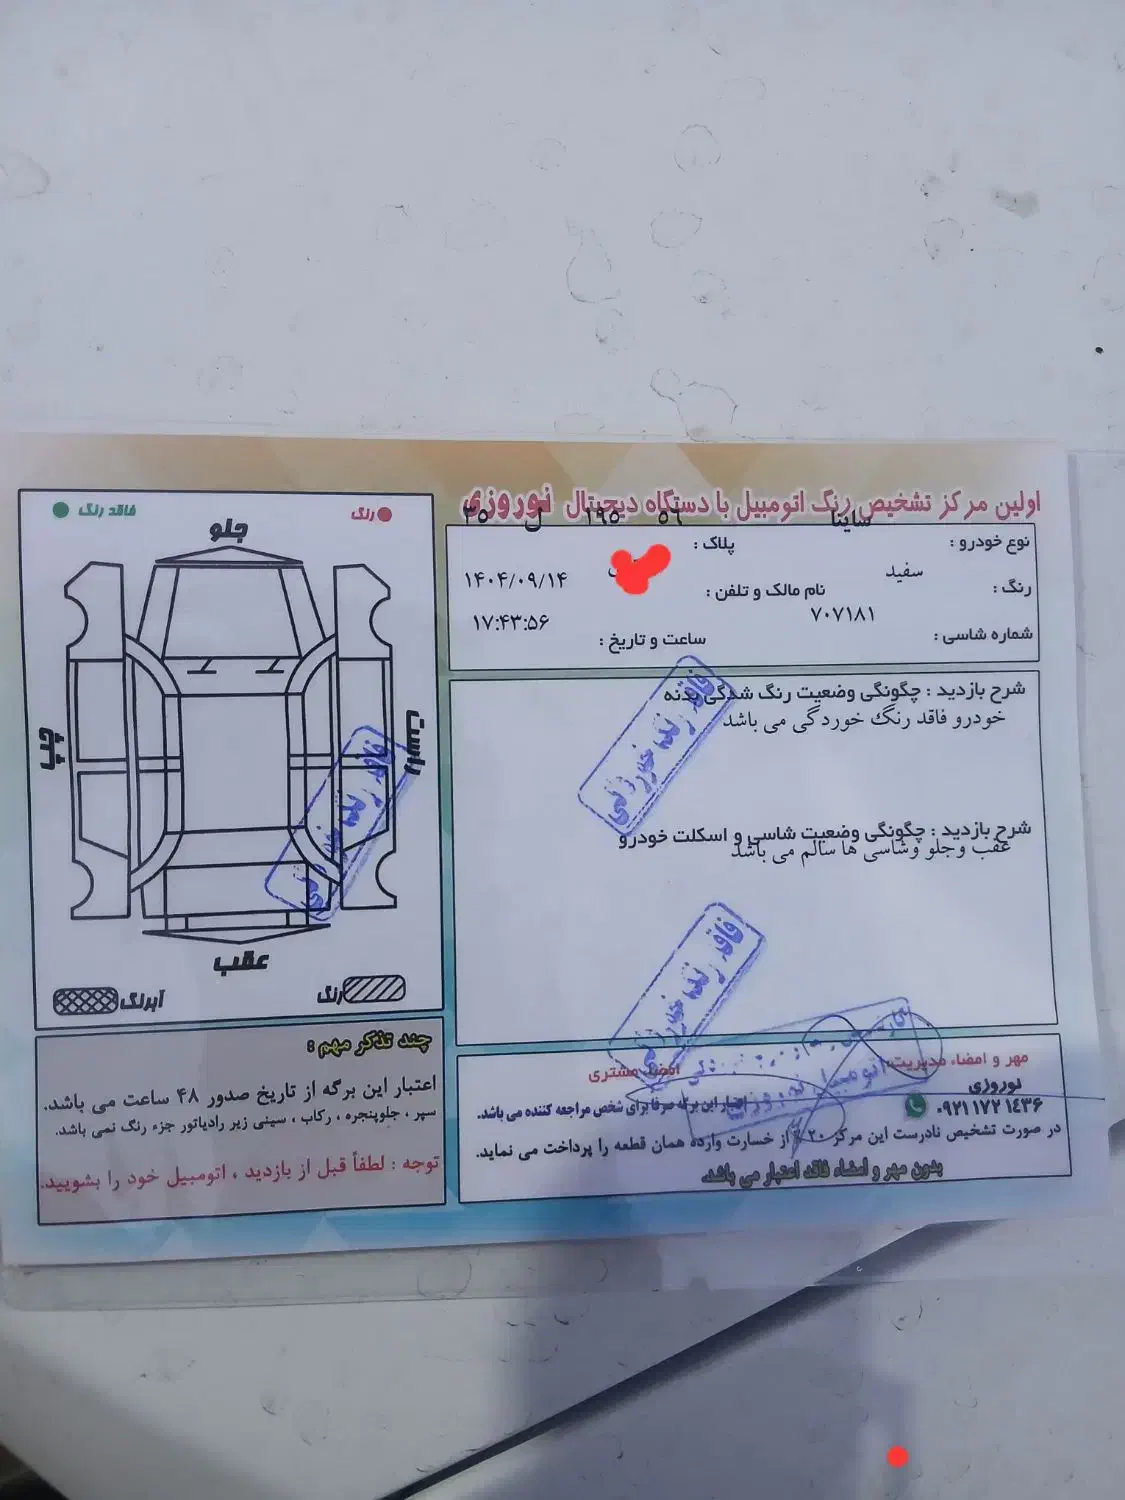 اولین مرکز تشخیص رنگ اتومبیل با دستگاه دیجیتال نوروزی
نوع خودرو : ساینا
پلاک : ۵۶ ۱۹۵ ل ۳۵
رنگ : سفید
نام مالک و تلفن :
۱۴۰۴/۰۹/۱۴
شماره شاسی : ۷۰۷۱۸۱
ساعت و تاریخ : ۱۷:۴۳:۵۶
شرح بازدید : چگونگی وضعیت رنگ شدگی بدنه
خودرو فاقد رنگ خوردگی می باشد
فاقد رنگ خوردگی
شرح بازدید : چگونگی وضعیت شاسی و اسکلت خودرو
عقب وجلو وشاسی ها سالم می باشد
فاقد رنگ خوردگی
مهر و امضاء مدیریت:
امضاء مشتری
نوروزی
۰۹۲۱ ۱۷۲ ۱۴۳۶
اعتبار این برگه صرفا برای شخص مراجعه کننده می باشد.
در صورت تشخیص نادرست این مرکز ۲۰٪ از خسارت وارده همان قطعه را پرداخت می نماید.
بدون مهر و امضاء فاقد اعتبار می باشد.
رنگ
فاقد رنگ
جلو
چپ
راست
فاقد رنگ خوردگی
عقب
رنگ
آبرنگ
چند تذکر مهم :
اعتبار این برگه از تاریخ صدور ۴۸ ساعت می باشد.
سپر ، جلوپنجره ، رکاب ، سینی زیر رادیاتور جزء رنگ نمی باشد.
توجه : لطفاً قبل از بازدید ، اتومبیل خود را بشویید.